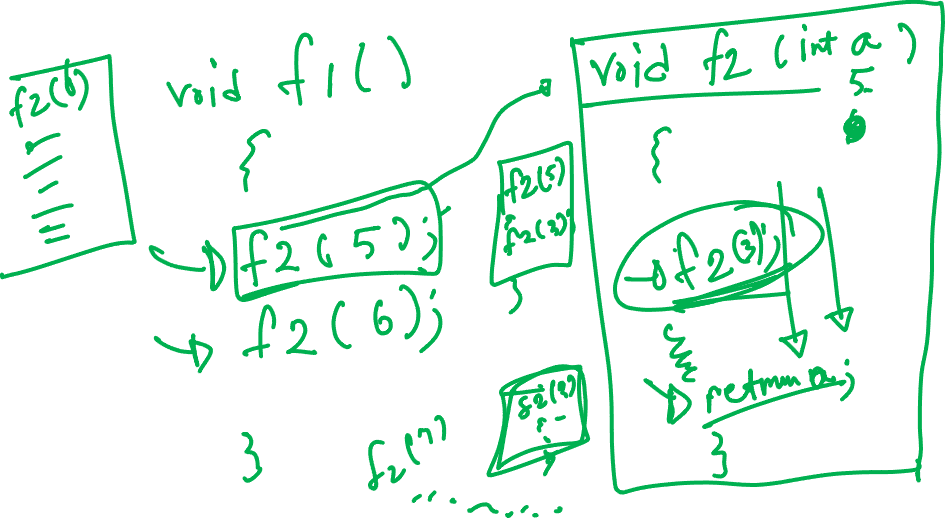 f2(6)
void f1()
{
f2(5);
f2(6);
}
f2(5)
f2(3)
}
f2(
f2(7)
void f2 (int a)
5
{
f2(3);
return a;
}